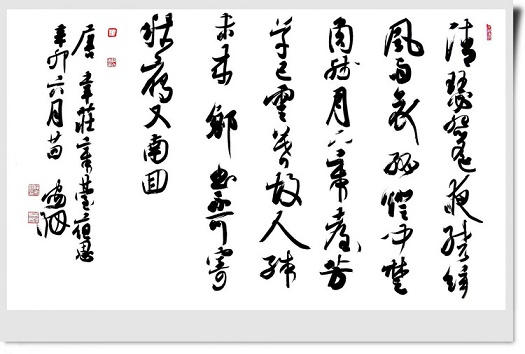 清瑟怨遙夜繞弦
風雨哀孤燈聞楚
角殘月下章臺芳
草已雲暮故人殊
未來鄉書不可寄
秋雁又南回
唐韋莊章臺夜思
辛卯六月